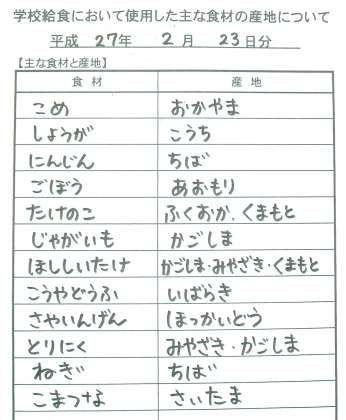 学校給食において使用した主な食材の産地について
平成 27年 2月 23日分
【主な食材と産地】
食材 産地
こめ おかやま
しょうが こうち
にんじん ちば
ごぼう あおもり
たけのこ ふくおか、くまもと
じゃがいも かごしま
ほししいたけ かごしま・みやざき・くまもと
こうやどうふ いばらき
さやいんげん ほっかいどう
とりにく みやざき・かごしま
ねぎ ちば
こまつな さいたま